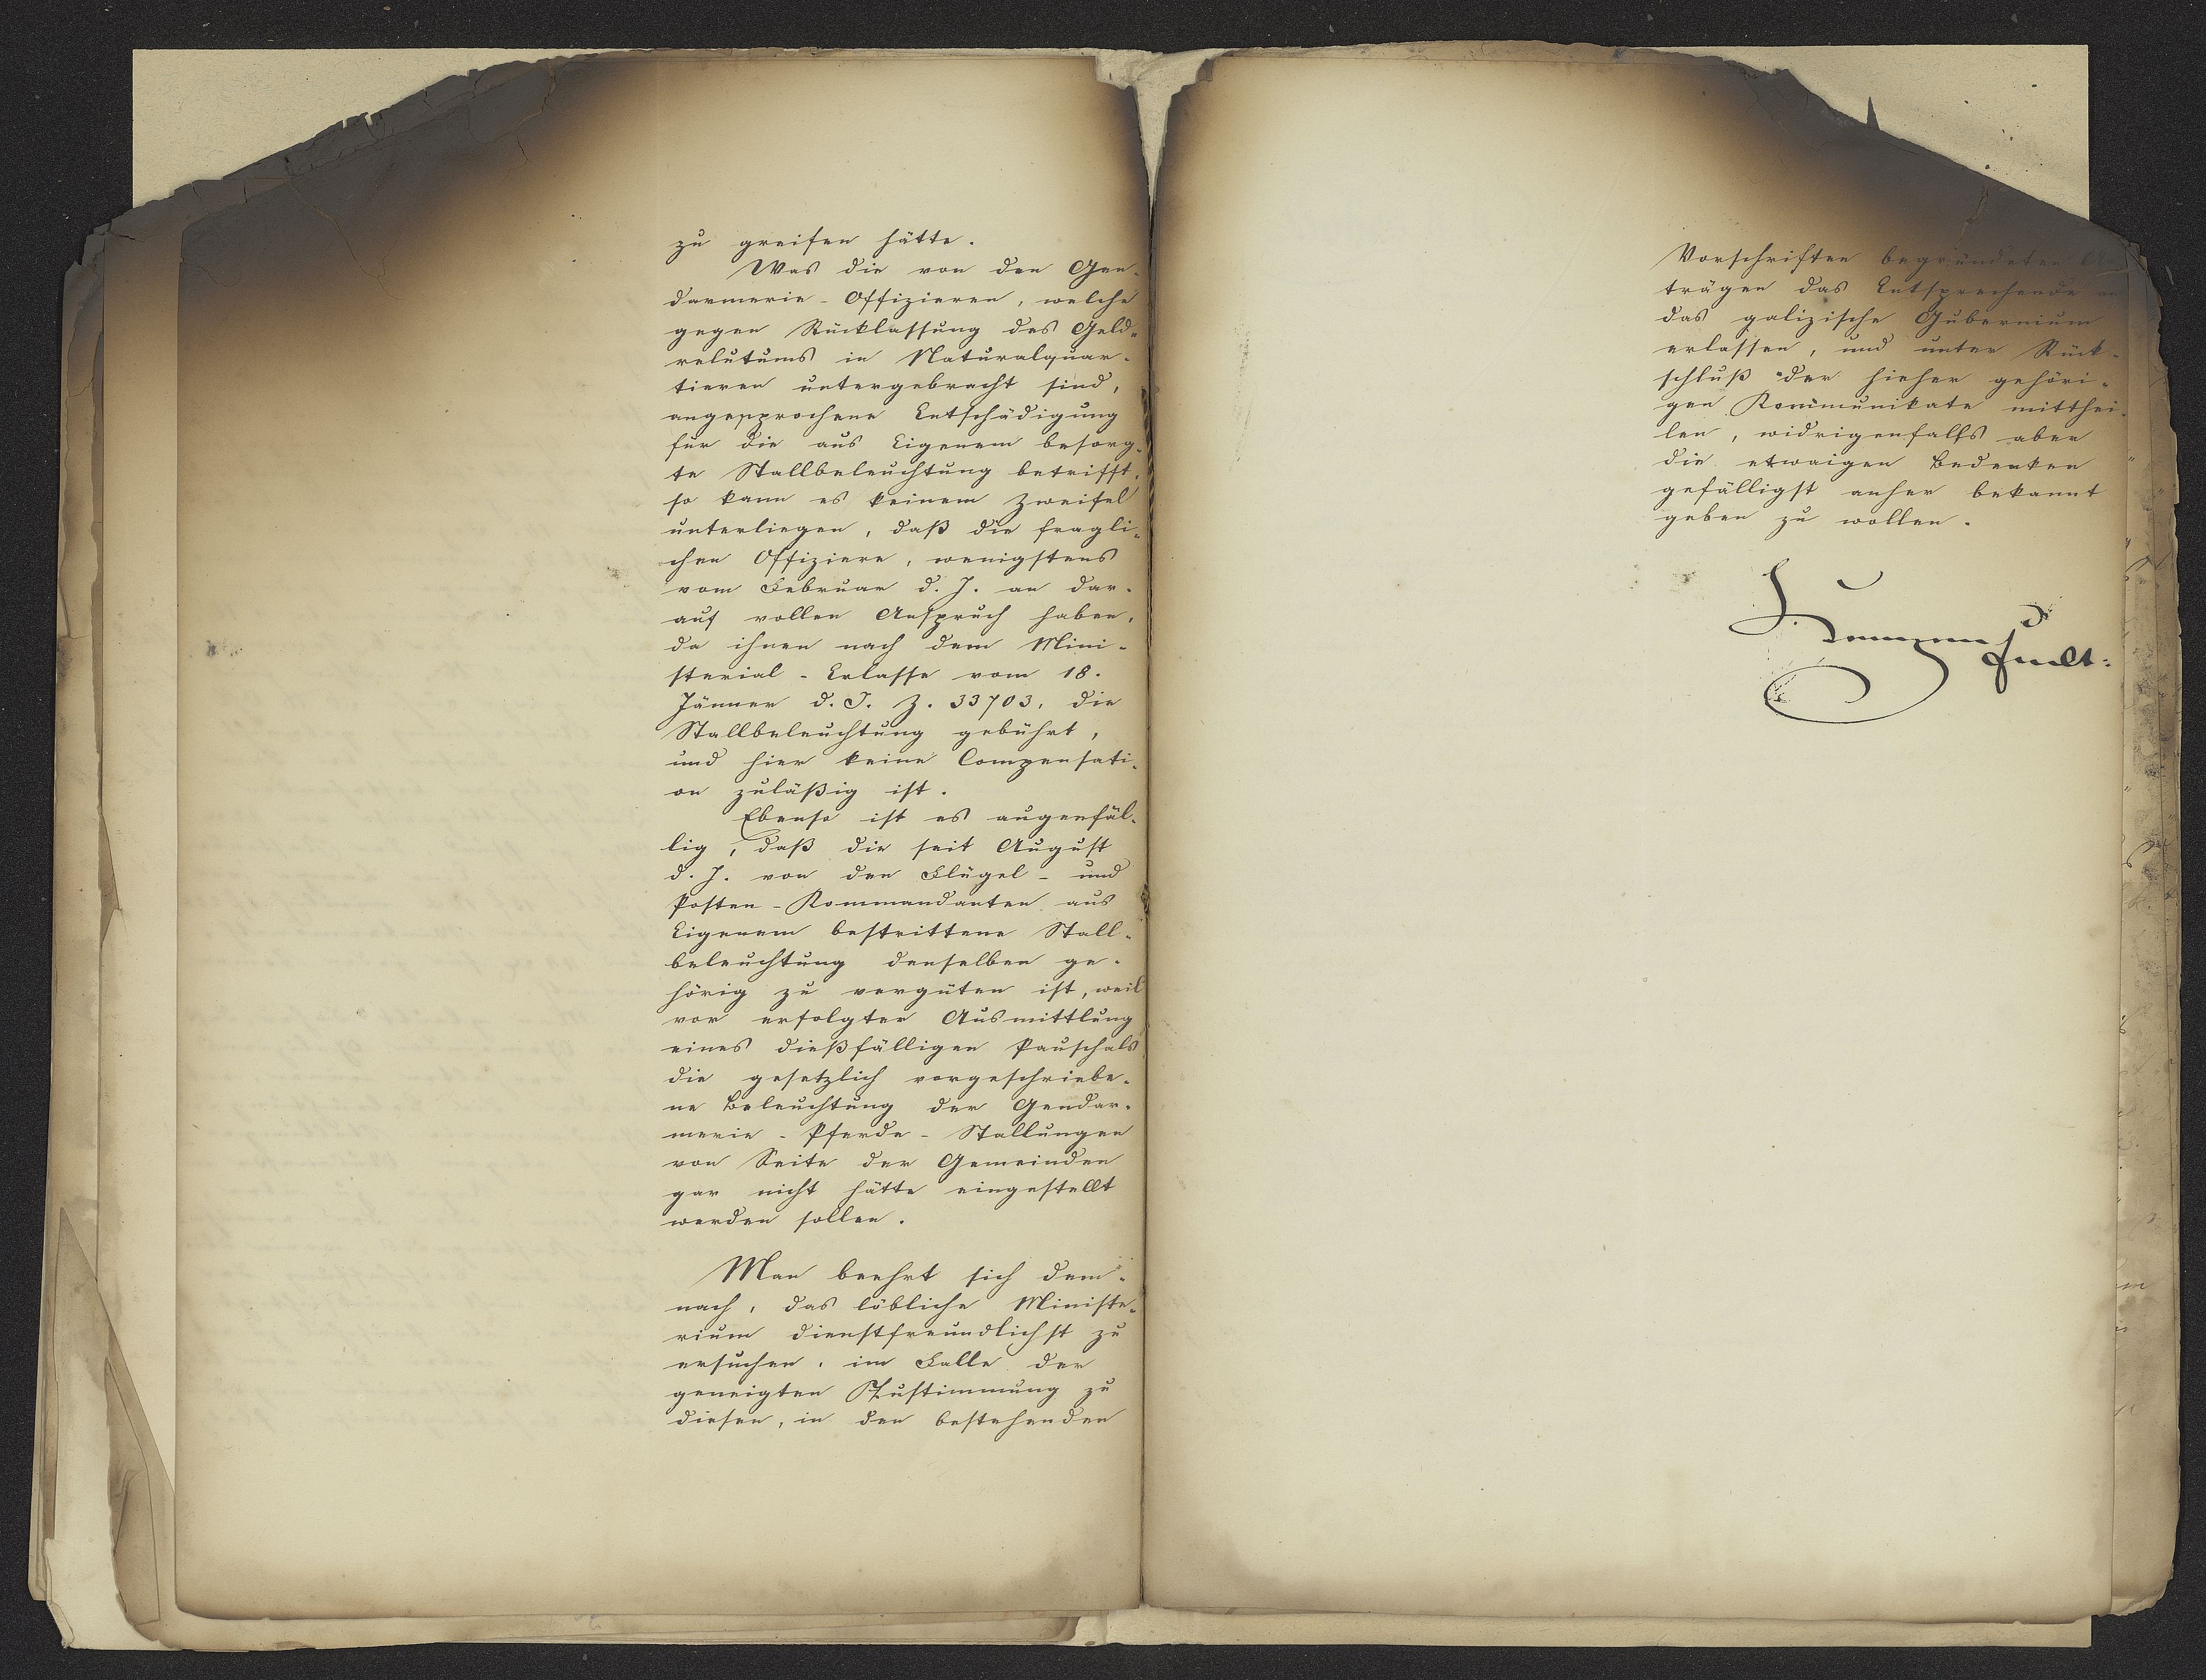 zu greifen hätte.
Was die von den Gen-
darmerie-Offizieren, welche
gegen Rücklassung des Geld-
relutums in Naturalquar-
tieren untergebracht sind,
angesprochene Entschädigung
für die aus Eigenem besorg-
te Stallbeleuchtung betrifft,
so kann es keinem Zweifel
unterliegen, daß die fragli-
chen Offiziere, wenigstens
vom Februar d. J. an dar-
auf vollen Anspruch haben,
da ihnen nach dem Mini-
sterial-Erlasse vom 18.
Jänner d. J. Z. 33703, die
Stallbeleuchtung gebührt,
und hier keine Compensati-
on zuläßig ist.
Ebenso ist es augenfäl-
lig, daß die seit August
d. J. von den Flügel- und
Posten-Kommandanten aus
Eigenem bestrittene Stall-
beleuchtung denselben ge-
hörig zu vergüten ist, weil
vor erfolgter Ausmittlung
eines dießfälligen Pauschals
die gesetzlich vorgeschriebe-
ne Beleuchtung der Gendar-
merie-Pferde-Stallungen
von Seite der Gemeinden
gar nicht hätte eingestellt
werden sollen.
Man beehrt sich dem-
nach, das löbliche Ministe-
rium dienstfreundlichst zu
ersuchen, im Falle der
geneigten Zustimmung zu
diesen, in den bestehenden
Vorschriften begründeten An
trägen das Entsprechende an
das galizische Gubernium
erlassen, und unter Rück-
schluß der hieher gehöri-
gen Kommunikate mitthei-
len, widrigenfalls aber
die etwaigen Bedenken
gefälligst anher bekannt
geben zu wollen.